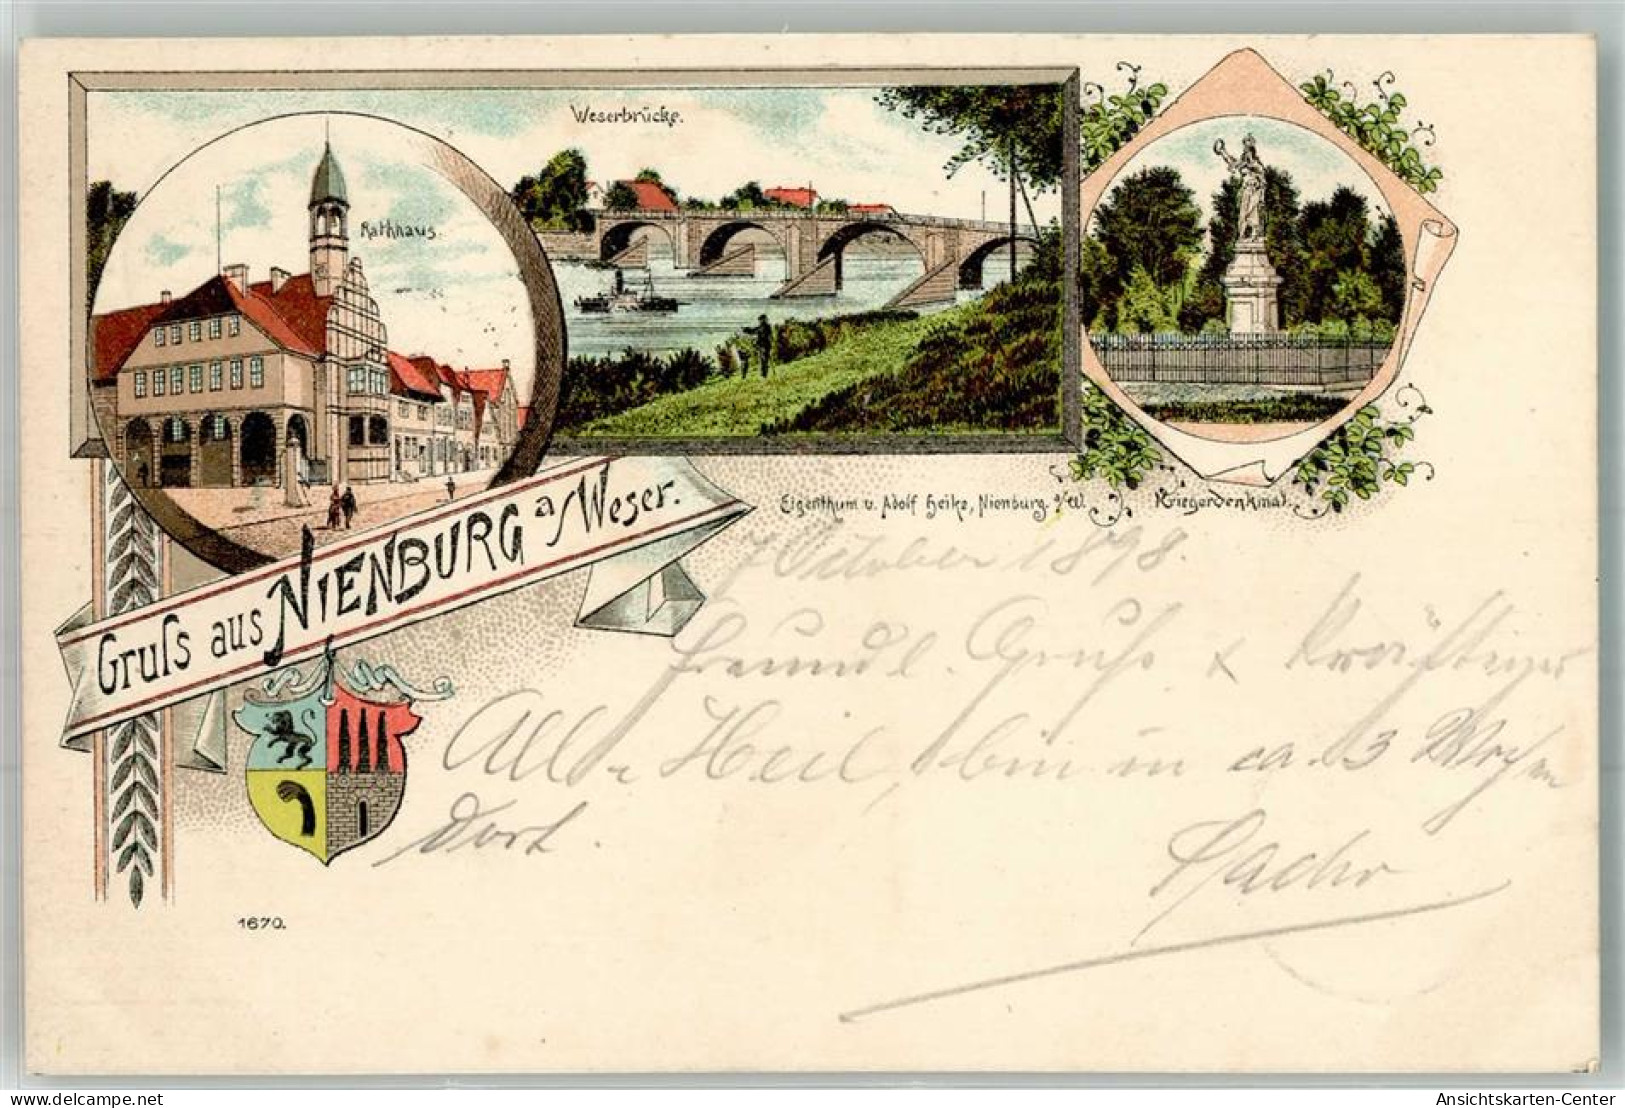 Weserbrücke.
Rathhaus.
Eigenthum v. Adolf Heike, Nienburg. a/W.
Kriegerdenkmal.
Gruſs aus NIENBURG a/Weser.
7 October 1898.
freundl. Gruß & Kräftiges
All - Heil, bin in ca. 3 Wochen
dort.
1670.
delcampe.net
Ansichtskarten-Center